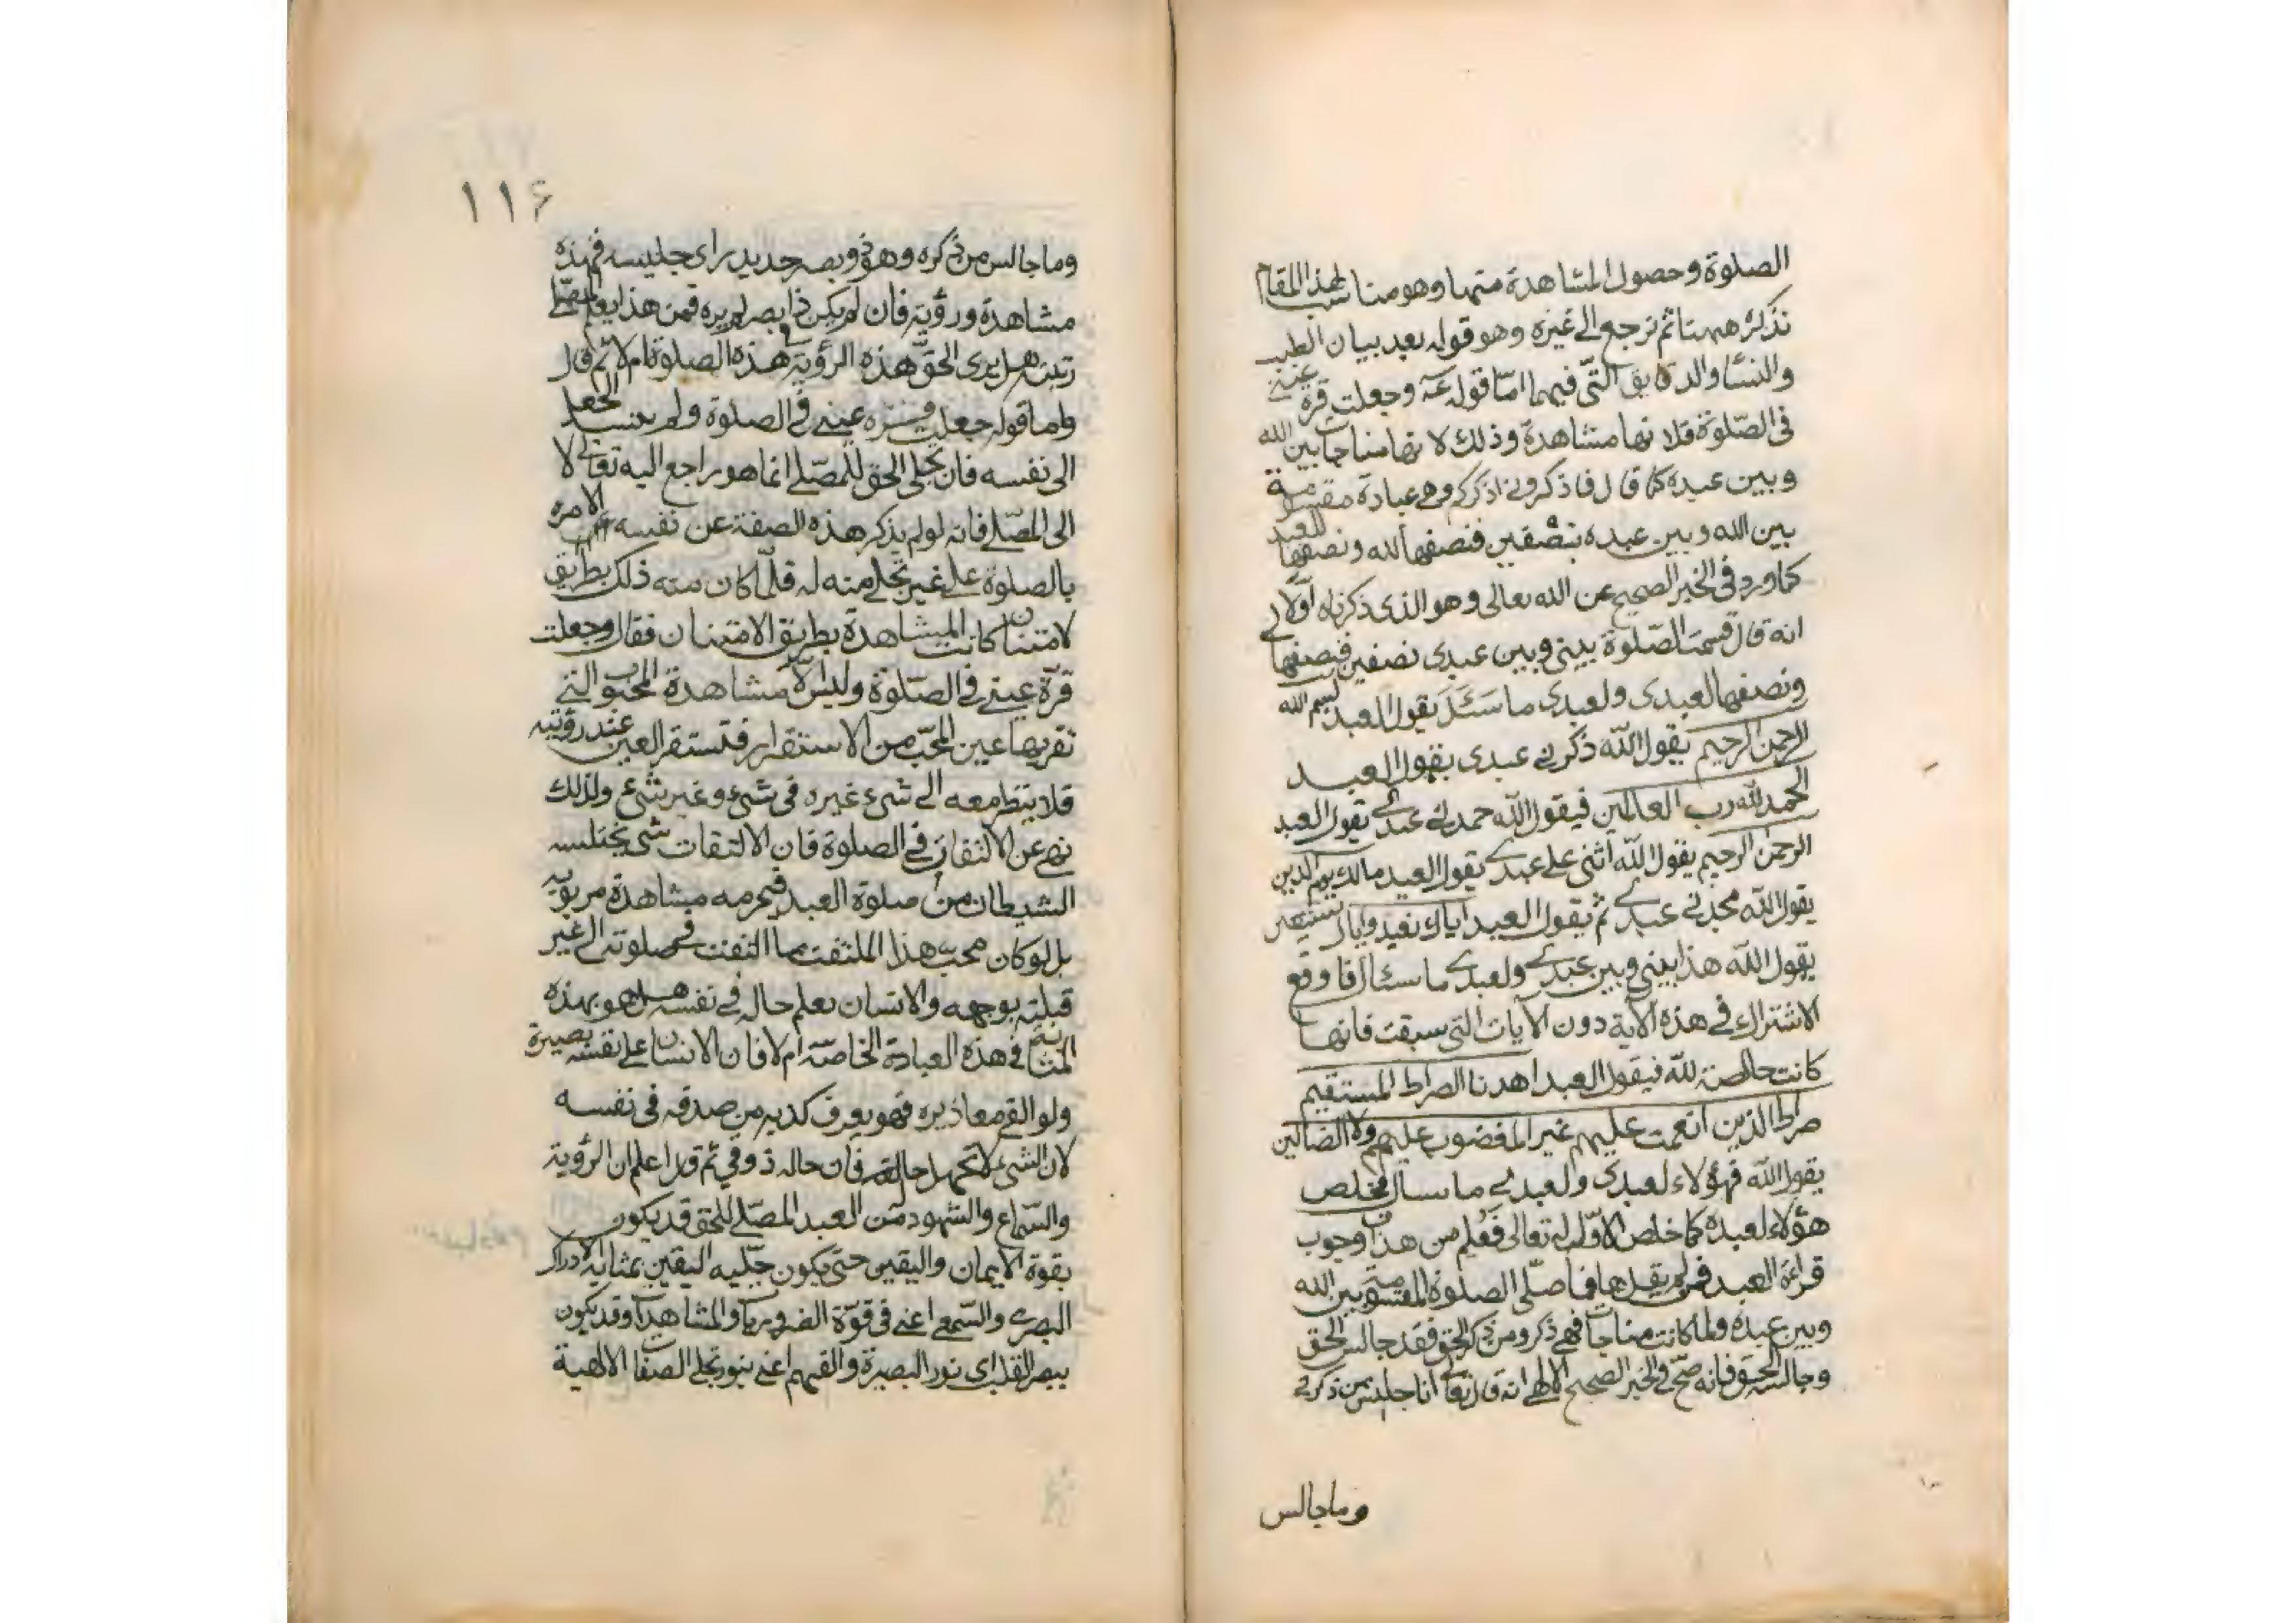 الصلوة وحصول المشاهدة منها وهو مناسب لهذا المقام
نذكره ههنا ثم نرجع الى غيره وهو قوله بعد بيان الطيب
والنسا والدقايق التى فيهما امّا قوله عه وجعلت قرة عينى
فى الصّلوة فلانها مشاهدة وذلك لانها مناجات بين الله
وبين عبده كما قال فاذكرونى اذكركم وهى عبادة مقسومة
بين الله وبين عبده بنصفين فنصفها لله ونصفها للعبد
كما ورد فى الخبر الصحيح عن الله تعالى وهو الذى ذكرناه اولا
انه قال قسمت الصّلوة بينى وبين عبدى نصفين فنصفها لى
ونصفها لعبدى ولعبدى ما سئل يقول العبد بسم الله
الرحمن الرحيم يقول الله ذكرنى عبدى يقول العبد
الحمد لله رب العالمين فيقول الله حمدنى عبدى يقول العبد
الرحمن الرحيم يقول الله اثنى على عبدى يقول العبد مالك يوم الدين
يقول الله مجّدنى عبدى ثم يقول العبد اياك نعبد واياك نستعين
يقول الله هذا بينى وبين عبدى ولعبدى ما سئال فاوقع
الاشتراك فى هذه الاية دون الايات التى سبقت فانها
كانت خالصة لله فيقول العبد اهدنا الصراط المستقيم
صراط الذين انعمت عليهم غير المغضوب عليهم ولا الضالين
يقول الله فهؤلاء لعبدى ولعبدى ما سال فخلص
هؤلاء لعبده كما خلص الاوّل له تعالى فعُلم من هذا وجوب
قراءة العبد فمن لم يقل ها فما صلّى الصلوة المقسومة بين الله
وبين عبده ولما كانت مناجات فهى ذكر ومن ذكر الحق فقد جالس الحق
وجالسه الحق فانه صحّ فى الخبر الصحيح الالهى انه قال تعالى انا جليس من ذكرنى
وماجالس
١١۶
وما جالس من ذكره وهو ذو بصر حديد راى جليسه فهذه
مشاهدة ورؤية فان لم يكن ذا بصر لم يره فمن هذا يعلم المصلى
رتبته هل يرى الحقّ هذه الرؤية فى هذه الصلوة ام لا ثم قال
واما قوله جعلت قرّه عينى فى الصلوة ولم ينسب الجعل
الى نفسه فان تجلى الحق للمصّلى انما هو راجع اليه تعالى لا
الى المصّلى فانه لو لم يذكر هذه الصفة عن نفسه لامره
بالصلوة على غير تجلى منه له فلمّا كان منه ذلك بطريق
لامتنان كانت المشاهدة بطريق الامتنان فقال وجعلت
قرّة عينى فى الصّلوة وليس الّا مشاهدة المحبوب التى
تقر بها عين المحبّ من الاستقرار فتستقر العين عند رؤيته
فلا ينظر معه الى شىء غيره فى شىء وغير شىء ولذلك
نهى عن الالتفات فى الصلوة فان الالتفات شى يختلسه
الشيطان من صلوة العبد فيحرمه مشاهدة
بل لو كان محبّ هذا الملتفت ما التفت فى صلوته الى غير
قبلته بوجهه والانسان يعلم حاله فى نفسه هل هو بهذه
المثابة فى هذه العبادة الخاصّة ام لا فان الانسان على نفسه بصيرة
ولو القى معاذيره فهو يعرف كذبه من صدقه فى نفسه
لان الشىء لا يجهل حاله فان حاله ذوقى ثم اعلم ان الرؤية
والسّماع والشهود من العبد المصّلى للحق قد يكون
بقوة الايمان واليقين حتى يكون جليه اليقين بمثابة الادراك
البصرى والسّمعى اعنى فى قوّة الضروريات والمشاهدات وقد يكون
ببصر القلب اى نور البصيرة والفهم اعنى بنور تجلى الصفات الالهية